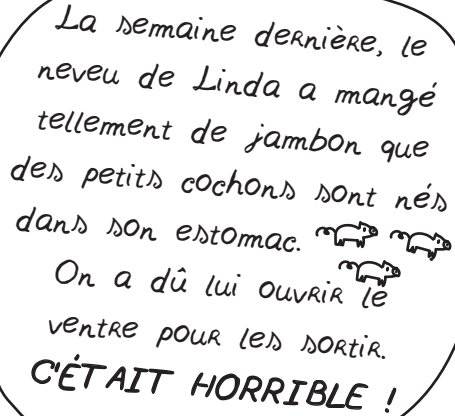 La semaine dernière, le
neveu de Linda a mangé
tellement de jambon que
des petits cochons sont nés
dans son estomac.
On a dû lui ouvrir le
ventre pour les sortir.
C'ÉTAIT HORRIBLE !